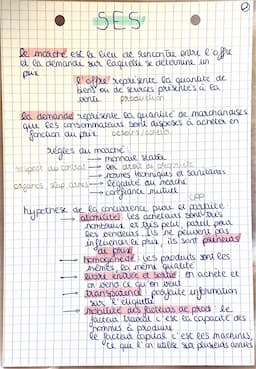 SES
Le marché est le lieu de rencontre entre l'offre
et la demande sur laquelle se détermine un
prix
l'offre représente la quantité de
biens ou de services présentés à la
vente production
La demande représente la quantité de marchandises
que les consommateurs sont disposés à acheter en
fonction du prix
règles du marché :
→ monnaie stable
respect du contrat → les droits de propriété
→ normes techniques et sanitaires
organes → légalité du marché
→ confiance mutuel
hypothèse de la concurrence pure et parfaite CPP
→ atomicité : les acheteurs sont très
nombreux et très petit, pareil pour
les vendeurs. Ils ne peuvent pas
influencer le prix, ils sont preneurs
de prix
→ homogénéité : les produits sont les
mêmes, la même qualité
→ libre entrée et sortie on achète et
on vend ce qu'on veut
→ transparence parfaite information
sur l'étiquette
→ mobilité des facteurs de prod : le
facteur travail c'est la capacité des
hommes à produire
le facteur capital c'est les machines,
ce que l'on utilise sur plusieurs années